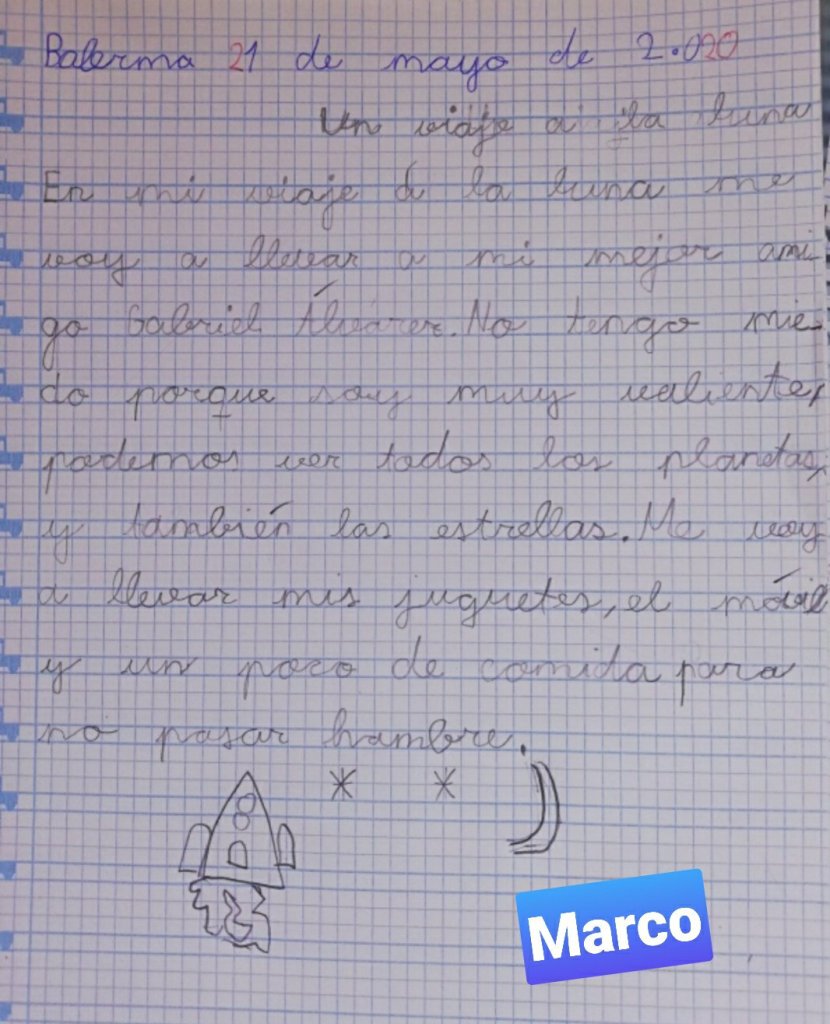 Balerma 21 de mayo de 2.020
Un viaje a la luna
En mi viaje a la luna me
voy a llevar a mi mejor ami
go Gabriel Álvarez. No tengo mie-
do porque soy muy valiente,
podemos ver todos los planetas,
y también las estrellas. Me voy
a llevar mis juguetes, el móvil
y un poco de comida para
no pasar hambre.
Marco